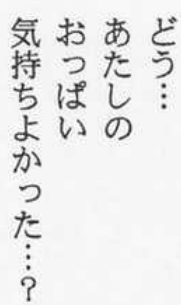 どう…
あたしの
おっぱい
気持ちよかった…？